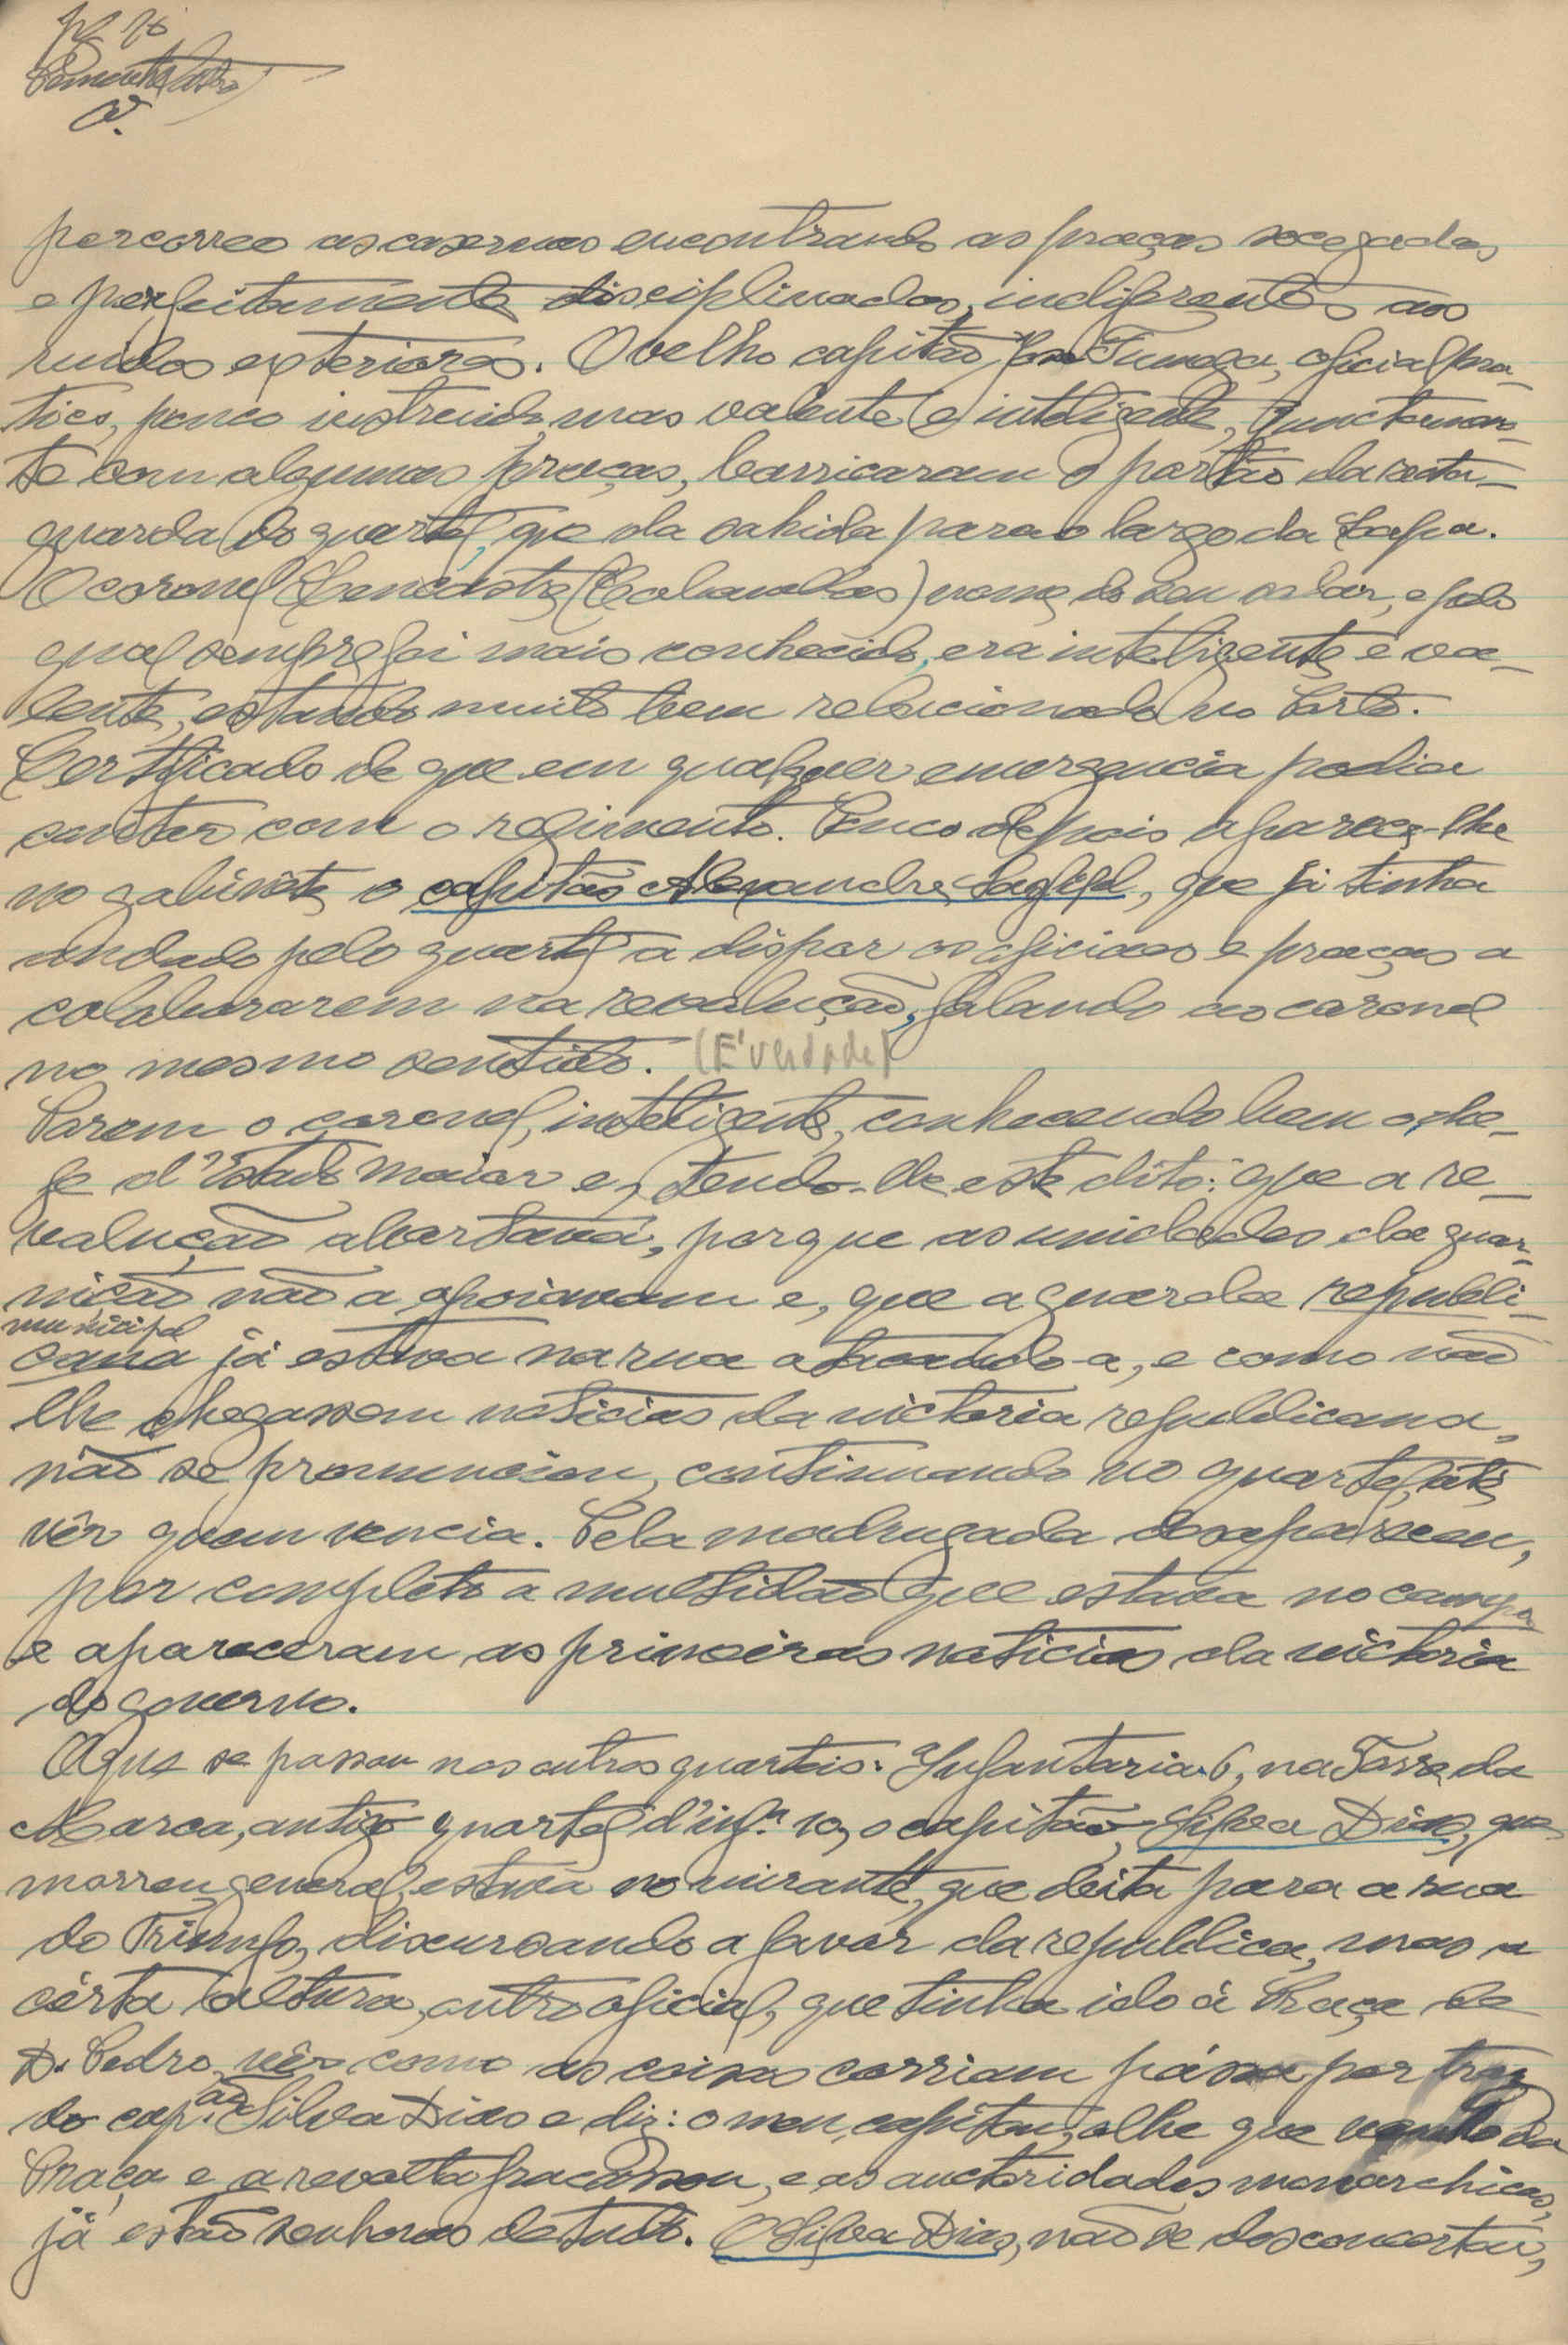 percorreo as casernas encontrando as praças socegadas
e perfeitamente disciplinadas, indiferentes aos
ruidos exteriores. O velho capitão Fumega, oficial pra-
tico, pouco instruido, mas valente e inteligente, junctamen-
te com algumas praças, barricaram o portão da recta-
guarda do quartel, que da sahida para o largo da Lapa.
O coronel Lencastre (Cobanellas) nome do seu solar, e pelo
qual sempre foi mais conhecido, era inteligente e va-
lente, estando muito bem relacionado no Porto.
Certificado de que em qualquer emergencia podia
contar com o regimento. Pouco depois aparece-lhe
no gabinete o capitão Alexandre Sarsfield, que já tinha
andado pelo quartel a dispor os oficiaes e praças a
colaborarem na revolução, falando ao coronel
no mesmo sentido. (É verdade)
Porem o coronel, inteligente, conhecendo bem o che-
fe d'Estado Maior e, tendo-lhe este dito: que a re-
volução abortava, porque as unidades da guar-
nição não a apoiavam e, que a guarda republi-
municipal
cana já estava na rua atacando-a, e como não
lhe chegassem noticias da victoria republicana,
não se pronunciou, continuando no quartel, até
vêr quem vencia. Pela madrugada desapareceu,
por completo a multidão que estava no campo
e apareceram as primeiras noticias da victoria
do governo.
O que se passou nos outros quarteis: Infantaria 6, na Torre da
Marca, antigo quartel d'inf.ª 10, o capitão Silva Dias, que
morreu general, estava no mirante, que deita para a rua
do Triunfo, discursando a favor da republica, mas a
cérta altura, outro oficial, que tinha ido á Praça de
D. Pedro, vêr como as coisas corriam pássa por traz
do cap.ão Silva Dias e diz: o meu capitão, olhe que venho da
Praça e a revolta fracassou, e as auctoridades monarchicas,
já estão senhoras de tudo. O Silva Dias, não se desconcertou,